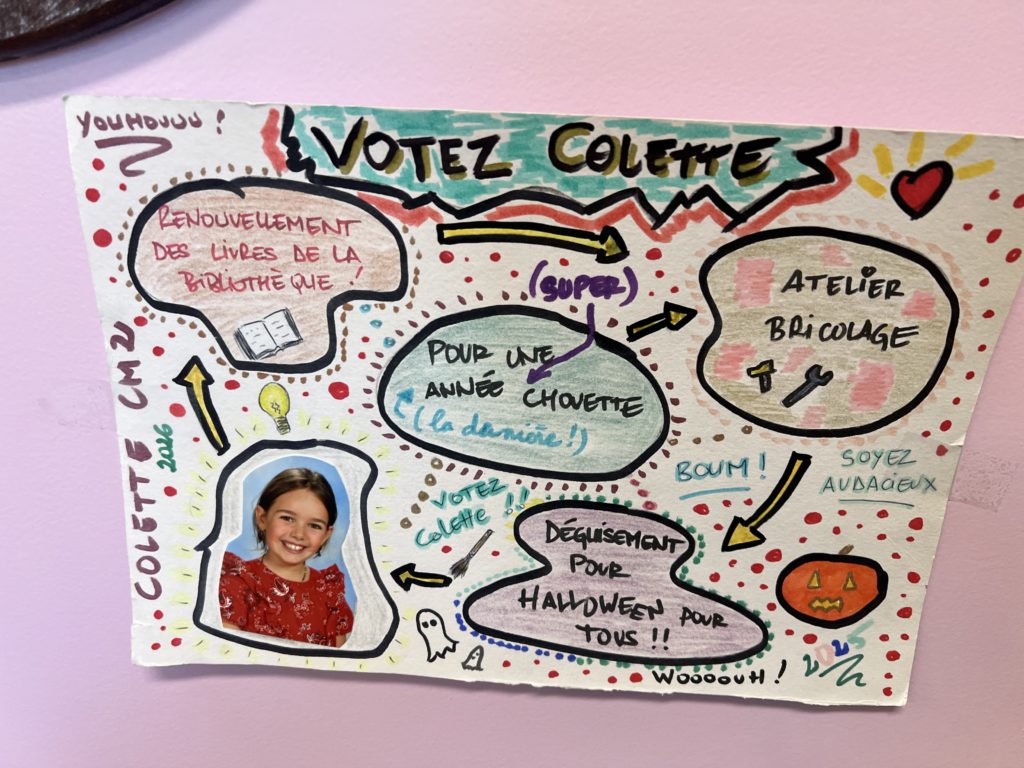 YOUHOUUU !
VOTEZ COLETTE
RENOUVELLEMENT
DES LIVRES DE LA
BIBLIOTHÈQUE !
(SUPER)
POUR UNE
ANNÉE CHOUETTE
(la dernière !)
ATELIER
BRICOLAGE
COLETTE CM2
2026
VOTEZ
Colette !!
BOUM !
SOYEZ
AUDACIEUX
DÉGUISEMENT
POUR
HALLOWEEN POUR
TOUS !!
WOOOOUH !
2025